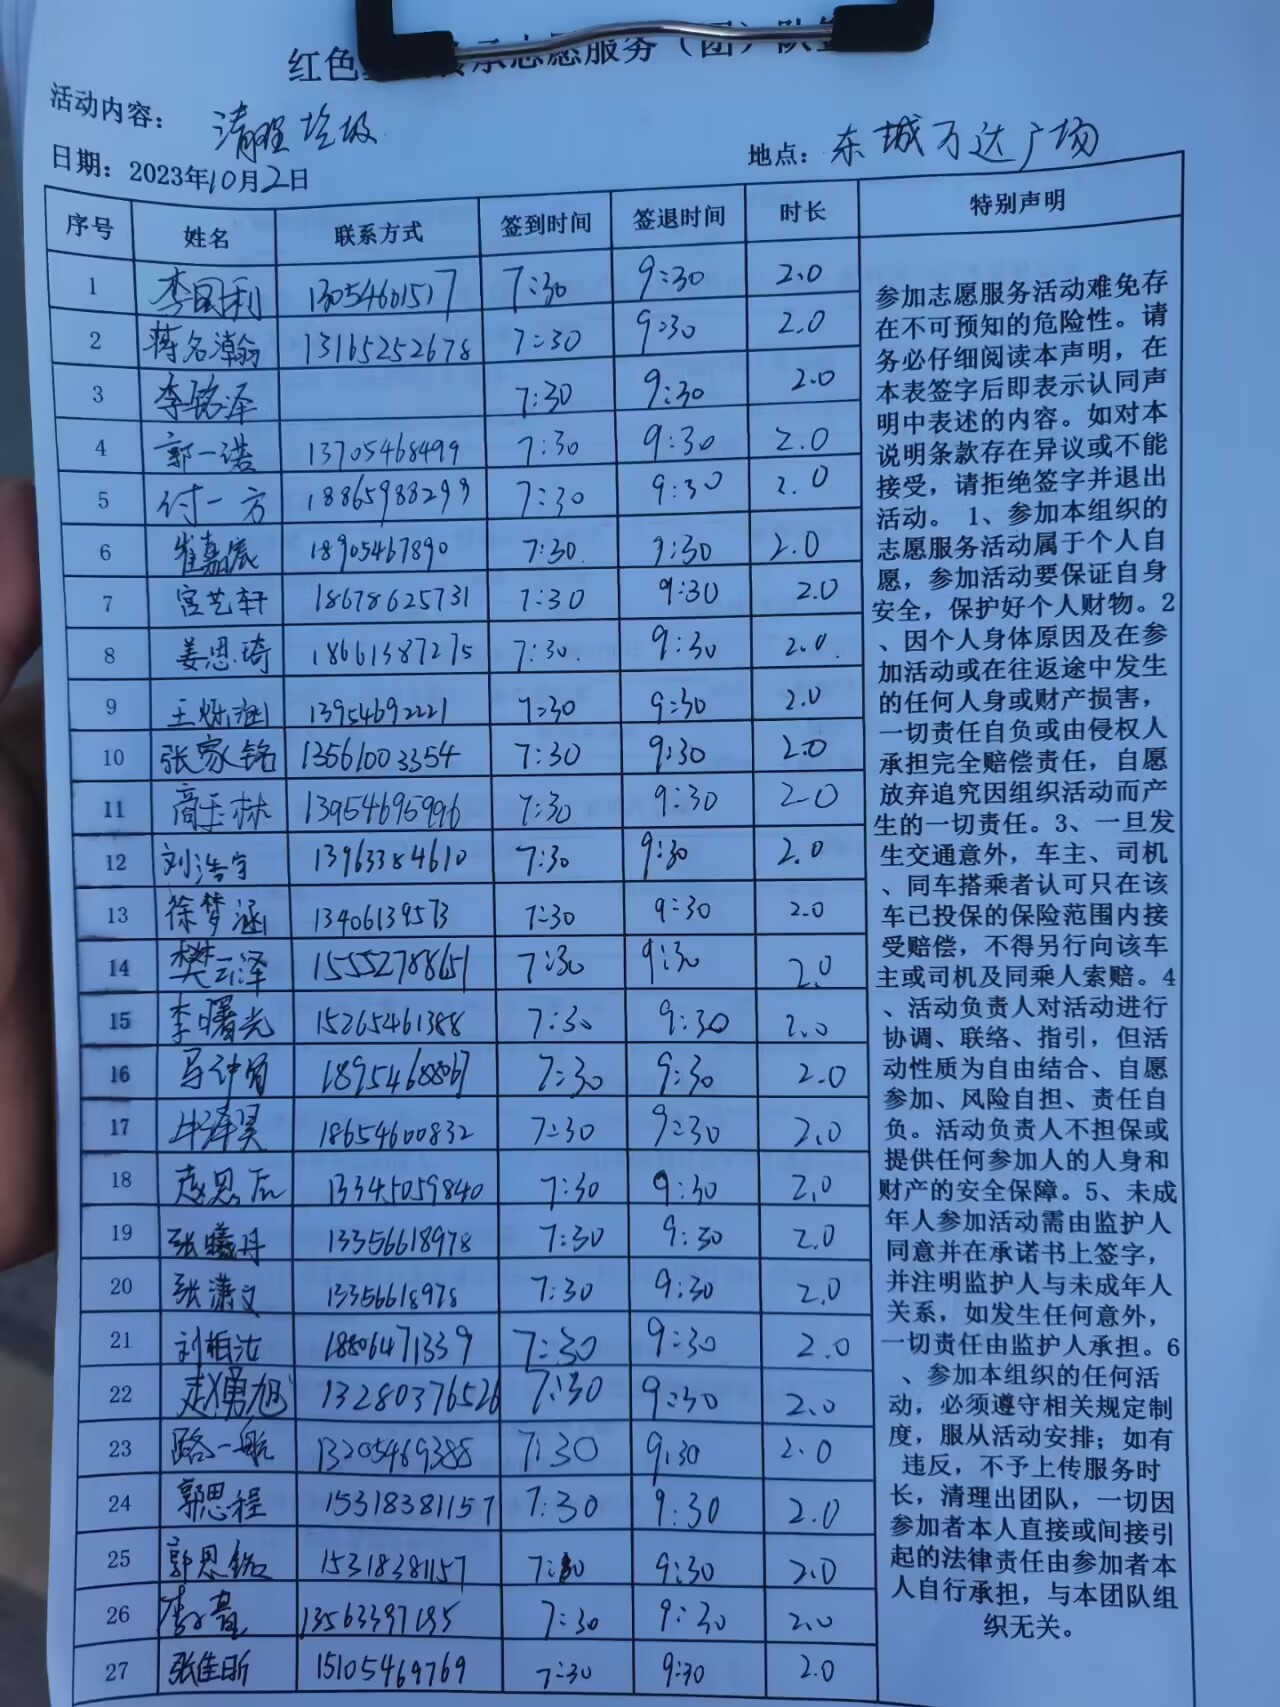 红色 承志愿服务（团）队签
活动内容： 清理垃圾
日期：2023年10月2日
地点：东城万达广场
序号 姓名 联系方式 签到时间 签退时间 时长 特别声明
1 李国利 13054601517 7:30 9:30 2.0
2 蒋名瀚 13165252678 7:30 9:30 2.0
3 李铭泽 7:30 9:30 2.0
4 郭一诺 13705468499 7:30 9:30 2.0
5 付一方 18865988299 7:30 9:30 2.0
6 崔嘉辰 18905467890 7:30 9:30 2.0
7 宫艺轩 18678625731 7:30 9:30 2.0
8 姜恩琦 18661387275 7:30 9:30 2.0
9 王烁涵 13954692221 7:30 9:30 2.0
10 张家铭 13561003354 7:30 9:30 2.0
11 商玉林 13954695996 7:30 9:30 2.0
12 刘浩宇 13963384610 7:30 9:30 2.0
13 徐梦涵 13406139573 7:30 9:30 2.0
14 樊云泽 15552788651 7:30 9:30 2.0
15 李曙光 15265461388 7:30 9:30 2.0
16 18954688067 7:30 9:30 2.0
17 牛泽昊 18654600832 7:30 9:30 2.0
18 赵恩 13345059840 7:30 9:30 2.0
19 张曦丹 13356618978 7:30 9:30 2.0
20 张潇文 13356618978 7:30 9:30 2.0
21 刘柏 18806471339 7:30 9:30 2.0
22 赵勇旭 13280376526 7:30 9:30 2.0
23 路一航 13205469388 7:30 9:30 2.0
24 郭思程 15318381157 7:30 9:30 2.0
25 郭恩铭 15318381157 7:30 9:30 2.0
26 13563397195 7:30 9:30 2.0
27 张佳昕 15105469769 7:30 9:30 2.0
参加志愿服务活动难免存
在不可预知的危险性。请
务必仔细阅读本声明，在
本表签字后即表示认同声
明中表述的内容。如对本
说明条款存在异议或不能
接受，请拒绝签字并退出
活动。 1、参加本组织的
志愿服务活动属于个人自
愿，参加活动要保证自身
安全，保护好个人财物。2
、因个人身体原因及在参
加活动或在往返途中发生
的任何人身或财产损害，
一切责任自负或由侵权人
承担完全赔偿责任，自愿
放弃追究因组织活动而产
生的一切责任。3、一旦发
生交通意外，车主、司机
、同车搭乘者认可只在该
车已投保的保险范围内接
受赔偿，不得另行向该车
主或司机及同乘人索赔。4
、活动负责人对活动进行
协调、联络、指引，但活
动性质为自由结合、自愿
参加、风险自担、责任自
负。活动负责人不担保或
提供任何参加人的人身和
财产的安全保障。5、未成
年人参加活动需由监护人
同意并在承诺书上签字，
并注明监护人与未成年人
关系，如发生任何意外，
一切责任由监护人承担。6
、参加本组织的任何活
动，必须遵守相关规定制
度，服从活动安排；如有
违反，不予上传服务时
长，清理出团队，一切因
参加者本人直接或间接引
起的法律责任由参加者本
人自行承担，与本团队组
织无关。